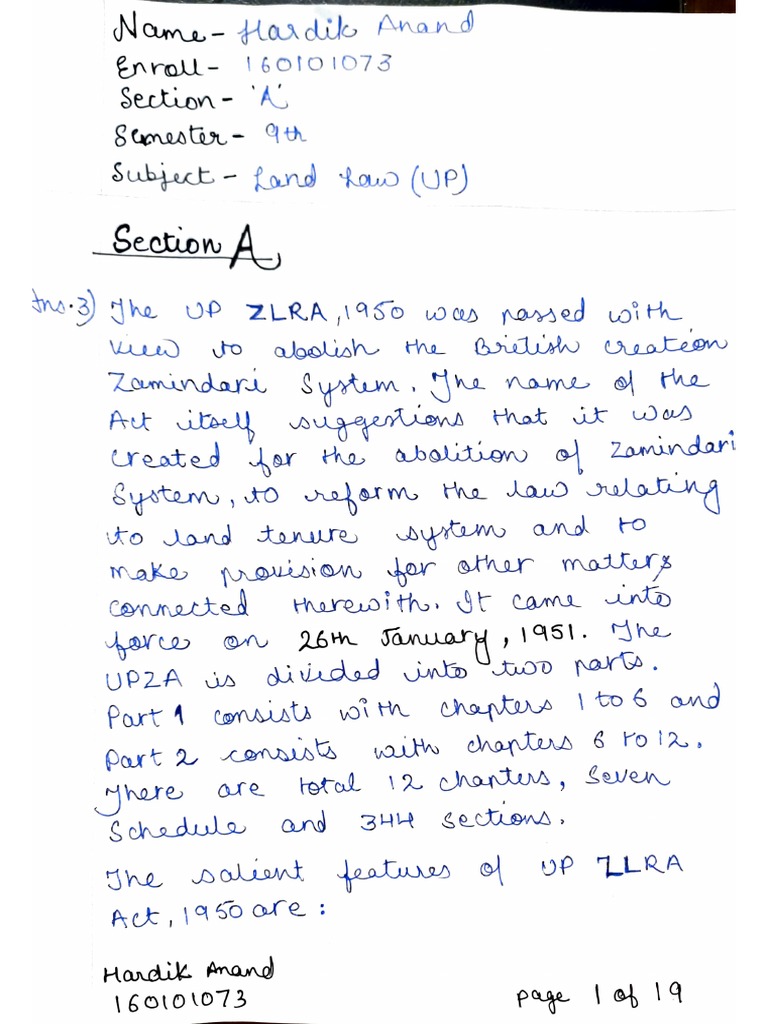 Name - Hardik Anand
Enroll - 160101073
Section - 'A'
Semester - 9th
Subject - Land Law (UP)
Section A
Ans.3) The UP ZLRA, 1950 was passed with
view to abolish the British creation
Zamindari System. The name of the
Act itself suggestions that it was
created for the abolition of Zamindari
System, to reform the law relating
to land tenure system and to
make provision for other matters
connected therewith. It came into
force on 26th January, 1951. The
UPZA is divided into two parts.
Part 1 consists with chapters 1 to 6 and
Part 2 consists with chapters 6 to 12.
There are total 12 chapters, Seven
Schedule and 344 sections.
The salient features of UP ZLRA
Act, 1950 are :
Hardik Anand
160101073
Page 1 of 19